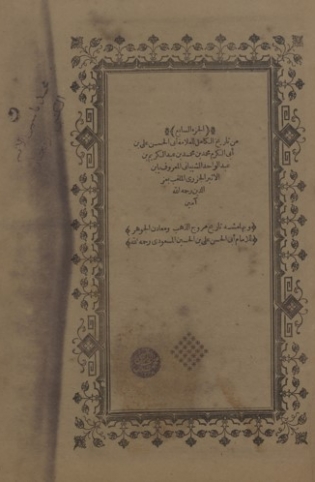 ﴿(الجزء السابع)﴾
من تاريخ الكامل للعلامة أبى الحسن على بن
أبى الكرم محمد بن محمد بن عبد الكريم بن
عبد الواحد الشيبانى المعروف بابن
الاثير الجزرى الملقب بعز
الدين رحمه الله
آمين
﴿وبهامشه تاريخ مروج الذهب ومعادن الجوهر﴾
﴿للامام أبى الحسن على بن الحسين المسعودى رحمه الله﴾